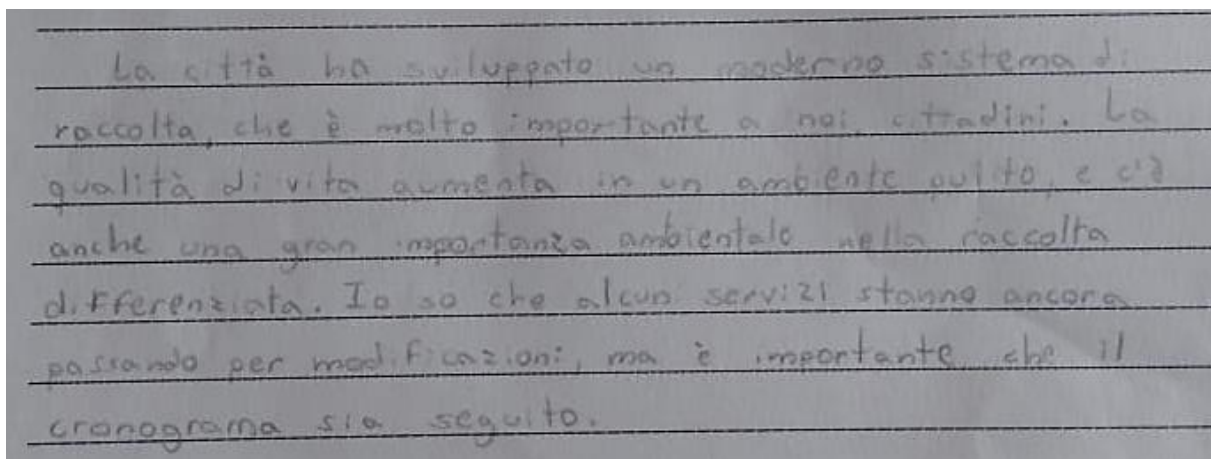 La città ha sviluppato un moderno sistema di
raccolta, che è molto importante a noi, cittadini. La
qualità di vita aumenta in un ambiente pulito, e c'è
anche una gran importanza ambientale nella raccolta
differenziata. Io so che alcuni servizi stanno ancora
passando per modificazioni, ma è importante che il
cronograma sia seguito.